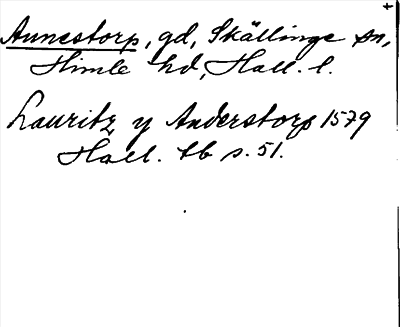 Annestorp, gd, Skällinge sn,
Himle hd, Hall. l.
Lauritz y Anderstorp 1579
Hall. tb s. 51.